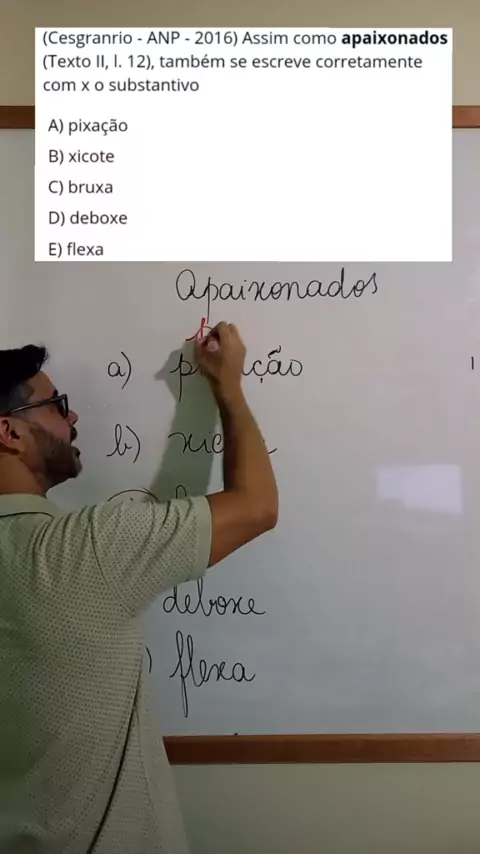 (Cesgranrio - ANP - 2016) Assim como apaixonados
(Texto II, l. 12), também se escreve corretamente
com x o substantivo
A) pixação
B) xicote
C) bruxa
D) deboxe
E) flexa
Apaixonados
a)
b)
deboxe
flexa